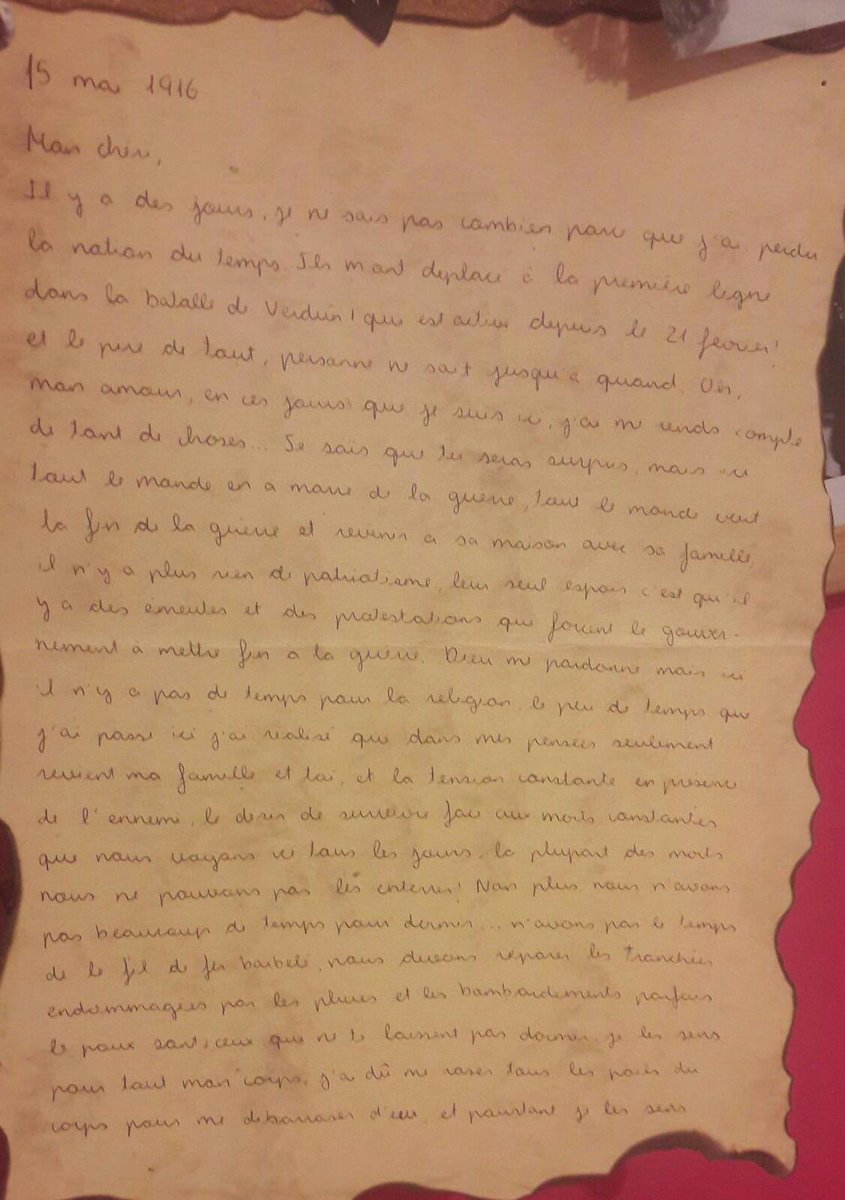 15 mai 1916
Mon chéri,
Il y a des jours, je ne sais pas combien parce que j'ai perdu
la notion du temps. Ils m'ont deplacé à la première ligne
dans la batalle de Verdun! que est active depuis le 21 février!
et le pire de tout, personne ne sait jusqu'a quand. Oh,
mon amour, en ces jours que je suis ici, j'ai me rends compte
de tant de choses... Je sais que tu seras surpris, mais ici
tout le monde en a marre de la guerre, tout le monde veut
la fin de la guerre et revenir a sa maison avec sa famille,
il n'y a plus rien de patriotisme, leur seul espoir c'est qu'il
y a des émeutes et des protestations que forcent le gouver-
nement a mettre fin a la guerre. Dieu me pardonne mais ici
il n'y a pas de temps pour la religion, le peu de temps que
j'ai passé ici j'ai réalisé que dans mes pensées seulement
revient ma famille et toi, et la tension constante en présence
de l'ennemi, le desir de survivre face aux morts constantes
que nous voyons ici tous les jours, la plupart des morts
nous ne pouvons pas les enterrer! Non plus nous n'avons
pas beaucoup de temps pour dormir... n'avons pas le temps
de le fil de fer barbelé, nous devons reparer les tranchées
endommagées par les pluies et les bombardements parfois
le poux sont ceux que ne te laissent pas dormir, je les sens
pour tout mon corps, j'ai dû me raser tous les poils du
corps pour me debarrasser d'eux, et pourtant je les sens